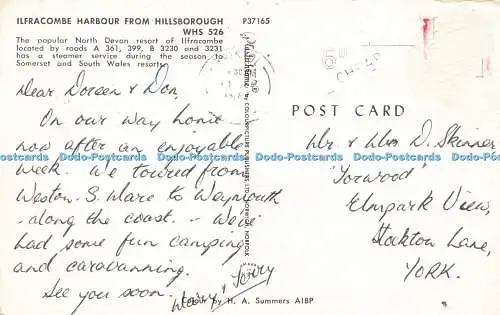 ILFRACOMBE HARBOUR FROM HILLSBOROUGH
WHS 526
The popular North Devon resort of Ilfracombe
located by roads A 361, 399, B 3230 and 3231
has a steamer service during the season to
Somerset and South Wales resorts.
P37165
Dear Doreen & Don,
On our way home
now after an enjoyable
week. We toured from
Weston-S. Mare to Weymouth
-along the coast - We've
had some fun camping
and caravanning.
See you soon.
& Terry
Colour by H. A. Summers AIBP
POST CARD
Mr & Mrs D. Skinner
"Torwood"
Elmpark View,
Stockton Lane,
YORK.
Dodo-Postcards Dodo-Postcards Dodo-Postcards Dodo-Postcards Dodo-Postcards Dodo-Postcards Dodo-Postcards Dodo-Postcards